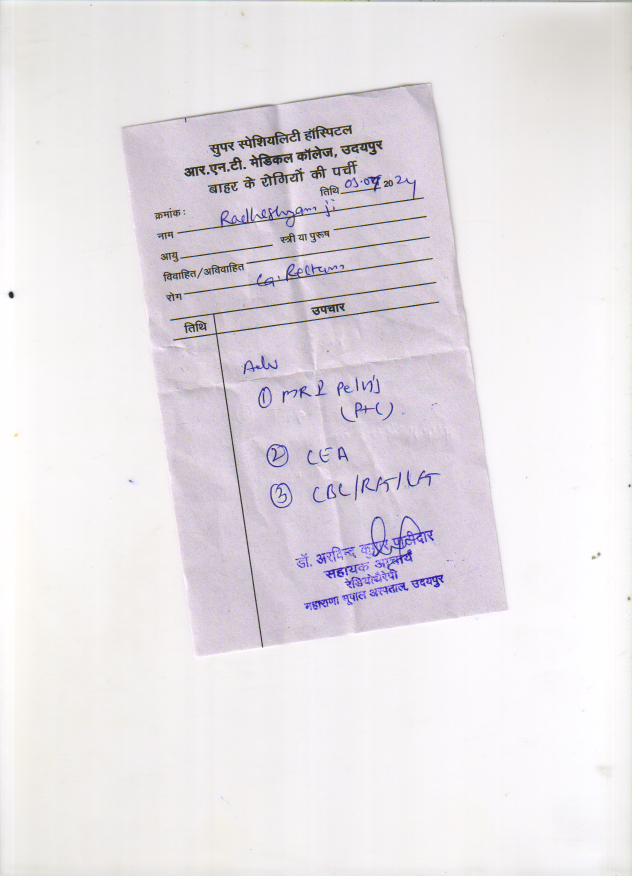 सुपर स्पेशियलिटी हॉस्पिटल
आर.एन.टी. मेडिकल कॉलेज, उदयपुर
बाहर के रोगियों की पर्ची
क्रमांक: तिथि 2024
नाम Radheshyam ji
आयु स्त्री या पुरूष
विवाहित/अविवाहित
रोग Ca. Rectum
तिथि उपचार
Adv
① MRI Pelvis
(P+C).
② CEA
③ CBC/RFT/LFT
डॉ. अरविन्द कुमार पाटीदार
सहायक आचार्य
रेडियोथैरेपी
महाराणा भूपाल अस्पताल, उदयपुर